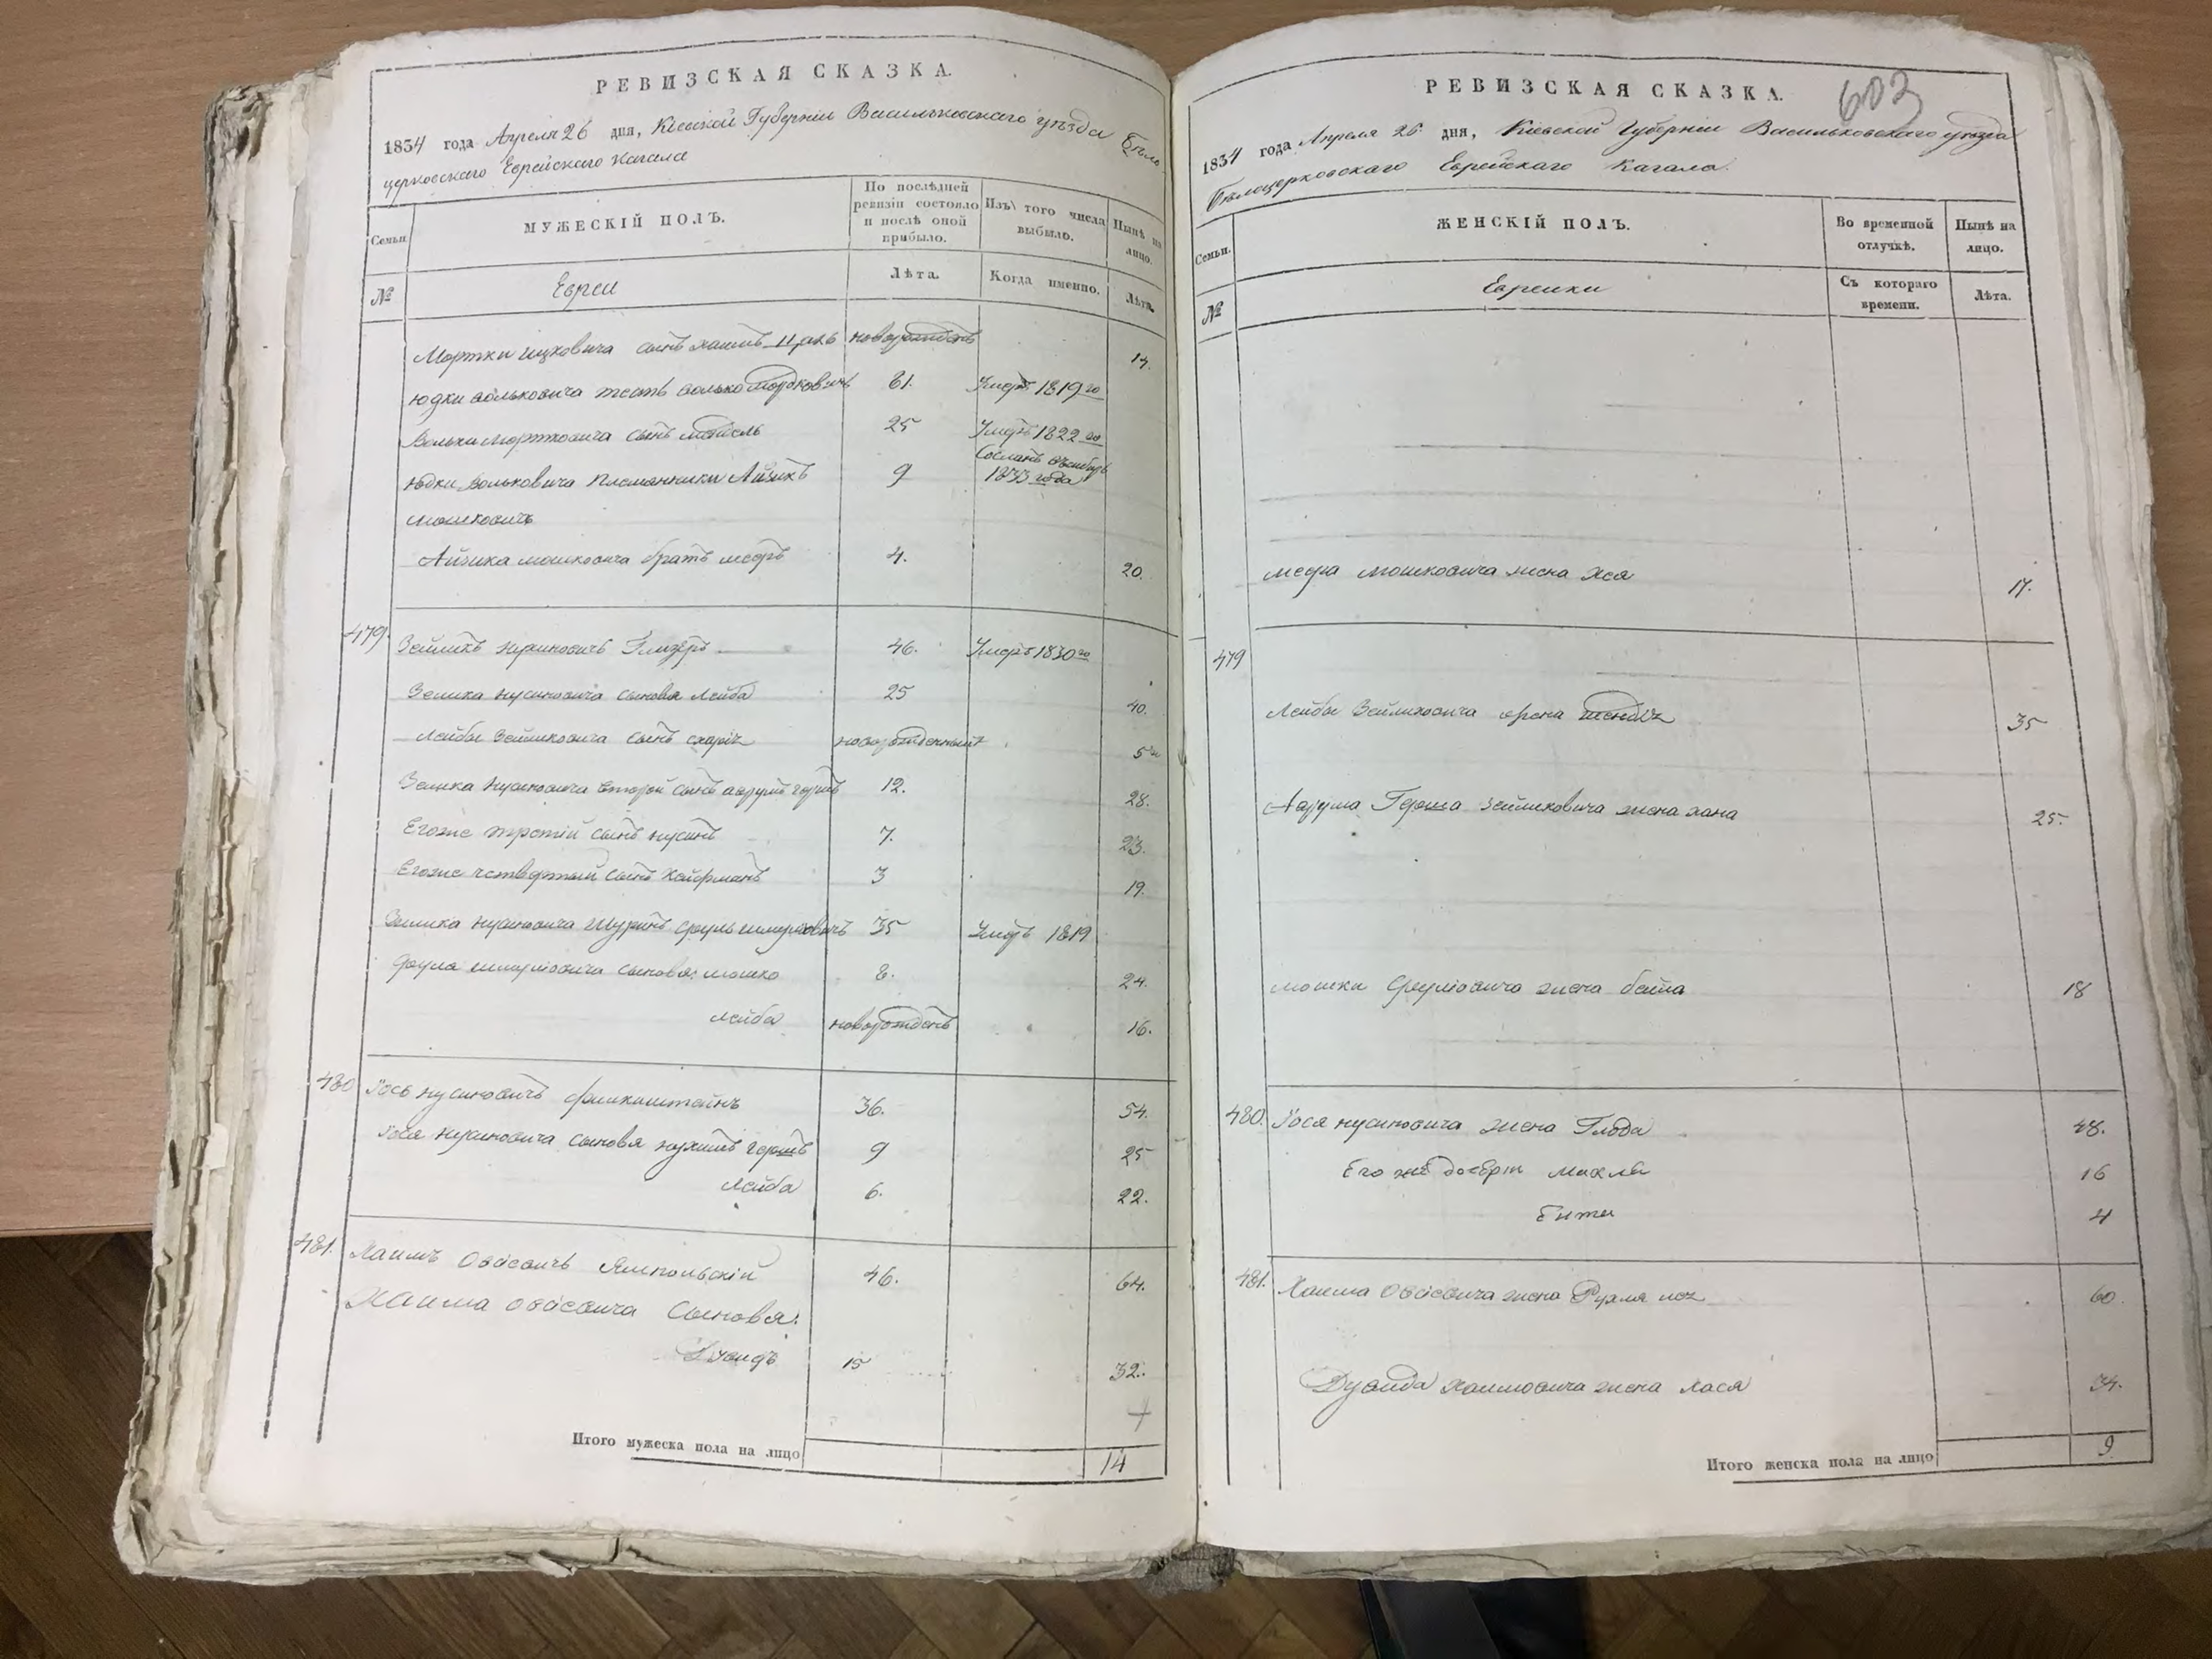 РЕВИЗСКАЯ СКАЗКА.
1834 года Апреля 26 дня, Кіевской Губерніи Васильковскаго уѣзда Бѣло
церковскаго Еврейскаго Кагала
Семьи.
МУЖЕСКІЙ ПОЛЪ.
По послѣдней ревизіи состояло и послѣ оной прибыло.
Изъ того числа выбыло.
Нынѣ на лицо.
№
Евреи
Лѣта.
Когда именно.
Лѣта.
Мортки ицковича сынъ хаимъ новорожденъ 14.
юдки вольковича тесть волько мордковичъ 61. Умеръ 1819 го
Вольки мортковича сынъ 25 Умеръ 1822 го
юдки вольковича племянники Айзикъ 9 Сосланъ въ сибирь 1833 года
мошковичъ
Айзика мошковича братъ мееръ 4. 20.
479. Зейликъ нусиновичъ 46. Умеръ 1830 го
Зелика нусиновича сыновья Лейба 25 40.
Лейбы Зейликовича сынъ новорожденный 5
Зелика Нусиновича второй сынъ аврумъ гершъ 12. 28.
Егоже третій сынъ нусинъ 7. 23.
Егоже четвертый сынъ 3 19.
Зелика нусиновича Шуринъ сруль 35 Умеръ 1819
сруля сыновья: мошко 8. 24.
лейба новорожденъ 16.
480 Іось нусиновичъ финкиштейнъ 36. 54.
Іося нусиновича сыновья нухимъ гершъ 9 25
Лейба 6. 22.
481. Хаимъ Овсіевичъ Ямпольскій 46. 64.
Хаима овсіевича Сыновья:
Дувидъ 15 32.
Итого мужеска пола на лицо 14
РЕВИЗСКАЯ СКАЗКА.
603
1834 года Апреля 26 дня, Кіевской Губерніи Васильковскаго уѣзда
Бѣлоцерковскаго Еврейскаго Кагала.
Семьи.
ЖЕНСКІЙ ПОЛЪ.
Во временной отлучкѣ.
Нынѣ на лицо.
№
Евреики
Съ котораго времени.
Лѣта.
меера мошковича жена хая 17.
479
Лейбы Зейликовича жена 35
Аврума Герша зейликовича жена хана 25.
мошки Срулювича жена бейла 18
480. Іося нусиновича жена 48.
Его же дочери махля 16
4
481. Хаима Овсіевича жена Рухля 60.
Дувида хаимовича жена хася 34.
Итого женска пола на лицо 9